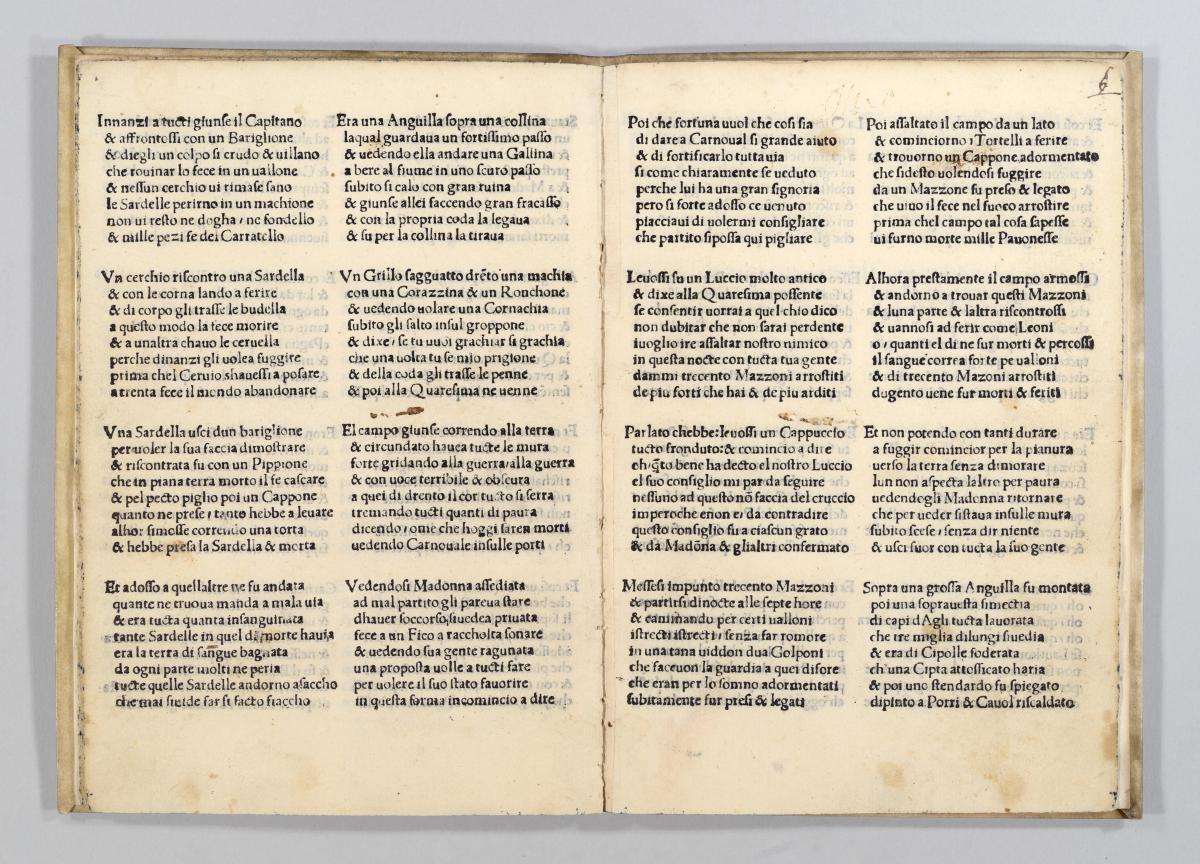 Innanzi a tucti giunse il Capitano
& affrontossi con un Bariglione
& diegli un colpo si crudo & uillano
che rouinar lo fece in un uallone
& nessun cerchio ui rimase sano
le Sardelle perirno in un machione
non ui resto ne dogha / ne fondello
& mille pezi fe del Carratello
Vn cerchio riscontro una Sardella
& con le corna lando a ferire
& di corpo gli trasse le budella
a questo modo la fece morire
& a unaltra chauo le ceruella
perche dinanzi gli uolea fuggire
prima chel Ceruio shauessi a posare
a trenta fece il mondo abandonare
Vna Sardella usci dun bariglione
per uoler la sua faccia dimostrare
& riscontrata fu con un Pippione
che in piana terra morto il fe cascare
& pel pecto piglio poi un Cappone
quanto ne prese / tanto hebbe a leuare
alhor simosse correndo una torta
& hebbe presa la Sardella & morta
Et adosso a quellaltre ne fu andata
quante ne truoua manda a mala uia
& era tucta quanta insanguinata
tante Sardelle in quel di morte hauia
era la terra di sangue bagnata
da ogni parte molti ne peria
tucte quelle Sardelle andorno a saccho
che mai si uide far si facto fiaccho
Era una Anguilla sopra una collina
laqual guardaua un fortissimo passo
& uedendo ella andare una Gallina
a bere al fiume in uno scuro passo
subito si calo con gran ruina
& giunse allei faccendo gran fracasso
& con la propria coda la legaua
& su per la collina la tiraua
Vn Grillo sagguatto drẽto una machia
con una Corazzina & un Ronchone
& uedendo uolare una Cornachia
subito gli salto insul groppone
& dixe / se tu uuoi grachiar si grachia
che una uolta tu se mio prigione
& della coda gli trasse le penne
& poi alla Quaresima ne uenne
El campo giunse correndo alla terra
& circundato hauea tucte le mura
forte gridando alla guerra / alla guerra
& con uoce terribile & obscura
a quei di drento il cor tucto si serra
tremando tucti quanti di paura
dicendo / ome che hoggi saren morti
uedendo Carnouale insulle porti
Vedendosi Madonna assediata
ad mal partito gli pareua stare
dhauer soccorso, siuedea priuata
fece a un Fico a raccholta sonare
& uedendo sua gente ragunata
una proposta uolle a tucti fare
per uolere il suo stato fauorire
in questa forma incomincio a dire
6
Poi che fortuna uuol che cosi sia
di dare a Carnoual si grande aiuto
& di fortificarlo tutta uia
si come chiaramente se ueduto
perche lui ha una gran signoria
pero si forte adosso ce uenuto
piacciaui di uolermi consigliare
che partito sipossa qui pigliare
Leuossi su un Luccio molto antico
& dixe alla Quaresima possente
se consentir uorrai a quel chio dico
non dubitar che non sarai perdente
iuoglio ire assaltar nostro nimico
in questa nocte con tucta tua gente
dammi trecento Mazzoni arrostiti
de piu forti che hai & de piu arditi
Parlato chebbe: leuossi un Cappuccio
tucto fronduto: & comincio a dire
el suo consiglio mi par da seguire
nessuno ad questo nõ faccia del cruccio
imperoche e non e / da contradire
questo consiglio fu a ciascun grato
& da Madõna & glialtri confermato
Messesi impunto trecento Mazzoni
& partirsi dinocte alle septe hore
& caminando per certi ualloni
istrecti istrecti / senza far romore
in una tana uiddon dua Golponi
che faceuon la guardia a quei disore
che eran per lo somno adormentati
subitamente fur presi & legati
Poi assaltato il campo da un lato
& cominciorno i Tortelli a ferire
& trouorno un Cappone adormentato
che sidesto uolendosi fuggire
da un Mazzone fu preso & legato
che uiuo il fece nel fuoco arrostire
prima chel campo tal cosa sapesse
ui furno morte mille Pauonesse
Alhora prestamente il campo armossi
& andorno a trouar questi Mazzoni
& luna parte & laltra riscontrossi
& uannosi ad ferir come Leoni
o / quanti el di ne fur morti & percossi
il sangue correa forte pe ualloni
& di trecento Mazoni arrostiti
dugento uene fur morti & feriti
Et non potendo con tanti durare
a fuggir comincior per la pianura
uerso la terra senza dimorare
lun non aspecta laltro per paura
uedendogli Madonna ritornare
che per ueder sistaua insulle mura
subito scese / senza dir niente
& usci fuor con tucta la suo gente
Sopra una grossa Anguilla fu montata
poi una soprauesta simectia
di capi dAgli tucta lauorata
che tre miglia dilungi siuedia
& era di Cipolle foderata
ch una Cipta attossicato haria
& poi uno stendardo fu spiegato
dipinto a Porri & Cauol riscaldato